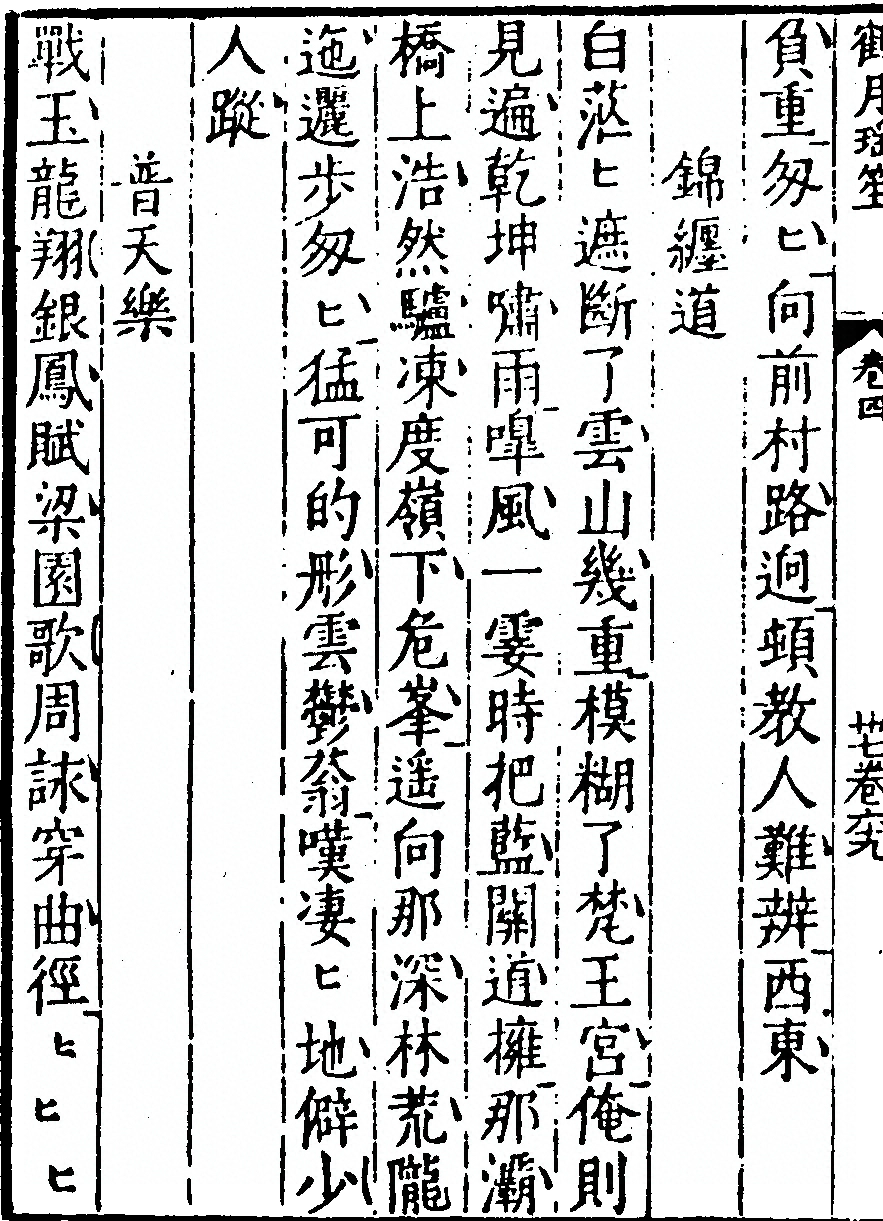 鶴月瑶笙 卷四 廿七卷六元
負重匆匕向前村路迥頓教人難辨西東
錦纏道
白茫匕遮斷了雲山幾重模糊了梵王宮俺則
見遍乾坤嘯雨嘷風一霎時把藍關道擁那灞
橋上浩然驢凍度嶺下危峯遥向那深林荒隴
迤邐步匆匕猛可的彤雲鬱蓊嘆凄匕地僻少
人蹤
普天樂
戰玉龍翔銀鳳賦梁園歌周詠穿曲徑匕匕匕